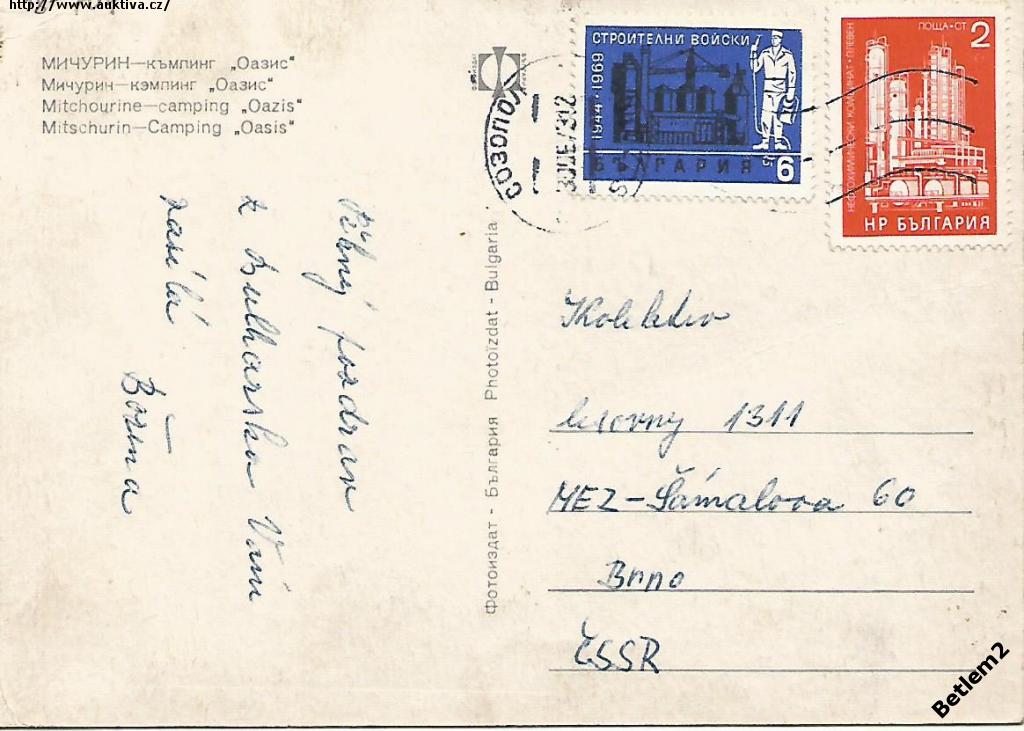 http://www.auktiva.cz/
МИЧУРИН—къмпинг „Оазис“
Мичурин—кэмпинг „Оазис“
Mitchourine—camping „Oazis“
Mitschurin—Camping „Oasis“
Pěkný pozdrav
z Bulharska Vám
zasílá
Božena
Фотоиздат - България Photoizdat - Bulgaria
СОЗОПОЛ
СТРОИТЕЛНИ ВОЙСКИ
1944 · 1969
БЪЛГАРИЯ
6
ПОЩА·СТ 2
НЕФТОХИМИЧЕСКИ КОМБИНАТ·ПЛЕВЕН
НР БЪЛГАРИЯ
Kolektiv
1311
MEZ-Šámalova 60
Brno
ČSSR
Betlem2